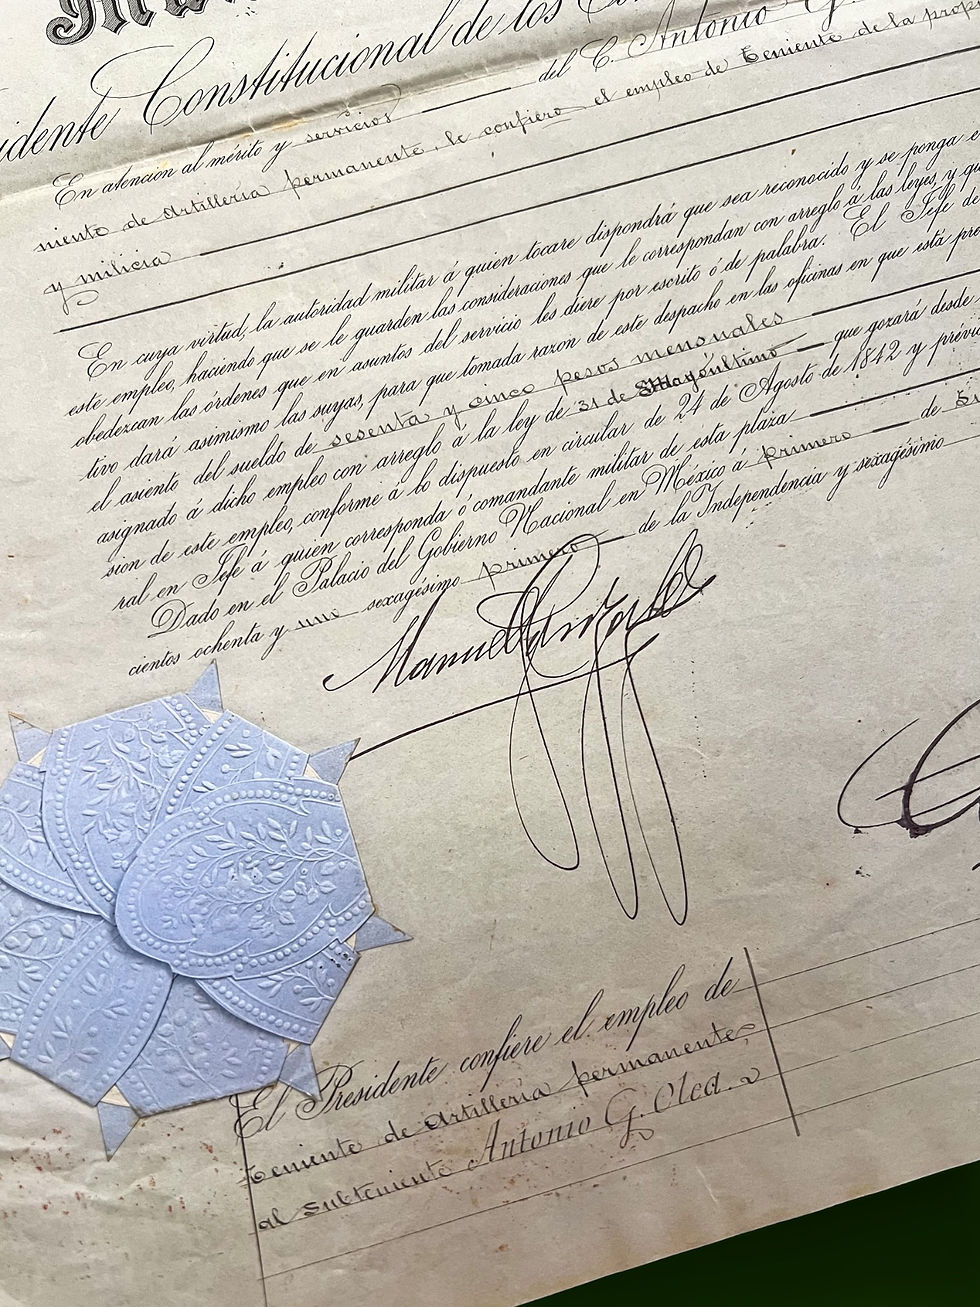 Man
idente Constitucional de los
En atención al mérito y servicios del C. Antonio G.
miento de Artillería permanente, le confiero el empleo de Teniente de la prop
y milicia
En cuya virtud, la autoridad militar á quien tocare dispondrá que sea reconocido y se ponga e
este empleo, haciendo que se le guarden las consideraciones que le correspondan con arreglo á las leyes, y qu
obedezcan las órdenes que en asuntos del servicio les diere por escrito ó de palabra. El Jefe de
tivo dará asimismo las suyas, para que tomada razon de este despacho en las oficinas en que está pre
el asiento del sueldo de sesenta y cinco pesos mensuales
asignado á dicho empleo con arreglo á la ley de 31 de Mayo último que gozará desde
sion de este empleo, conforme á lo dispuesto en circular de 24 de Agosto de 1842 y prévi
ral en Jefe á quien corresponda ó comandante militar de esta plaza
Dado en el Palacio del Gobierno Nacional en México á primero de
cientos ochenta y uno sexagésimo primero de la Independencia y sexagésimo
Manuel González
El Presidente confiere el empleo de
Teniente de Artillería permanente,
al subteniente Antonio G. Olea.